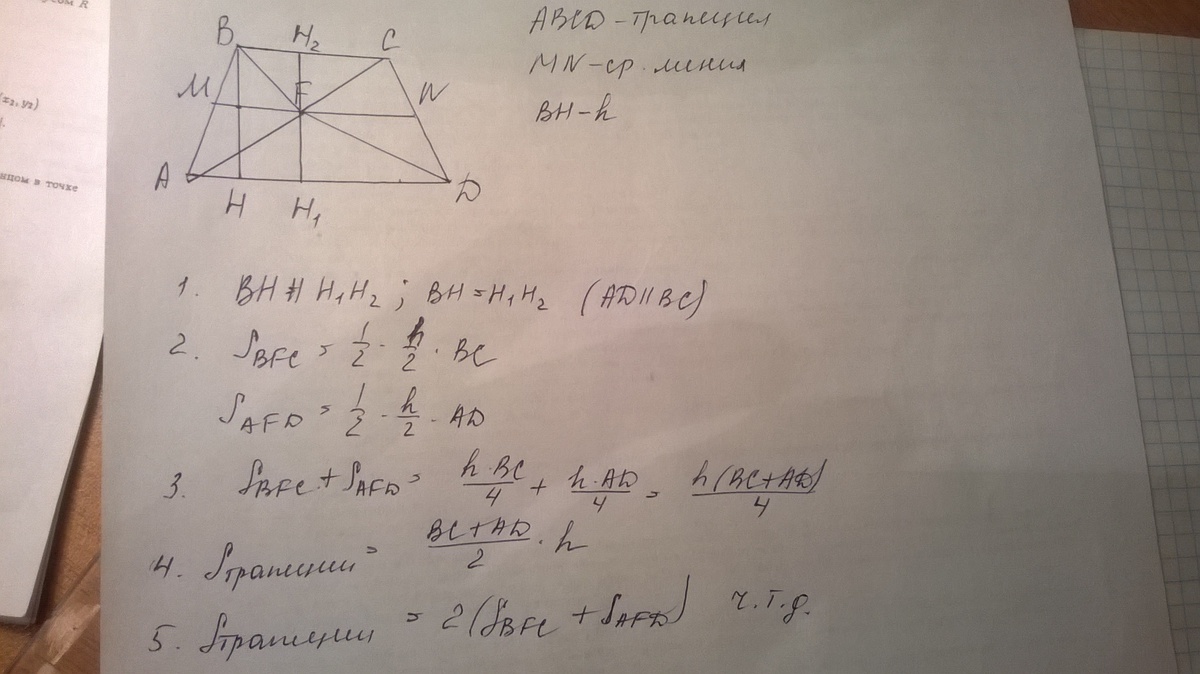 ом R
(x₂, y₂)
нцом в точке
B H₂ C
M F N
A H H₁ D
ABCD - трапеция
MN - ср. линия
BH - h
1. BH H₁H₂ ; BH = H₁H₂ (AD || BC)
2. S_BFC = 1/2 · h/2 · BC
S_AFD = 1/2 · h/2 · AD
3. S_BFC + S_AFD = h·BC/4 + h·AD/4 = h(BC+AD)/4
4. Sтрапеции = BC+AD/2 · h
5. Sтрапеции = 2(S_BFC + S_AFD) ч.т.д.